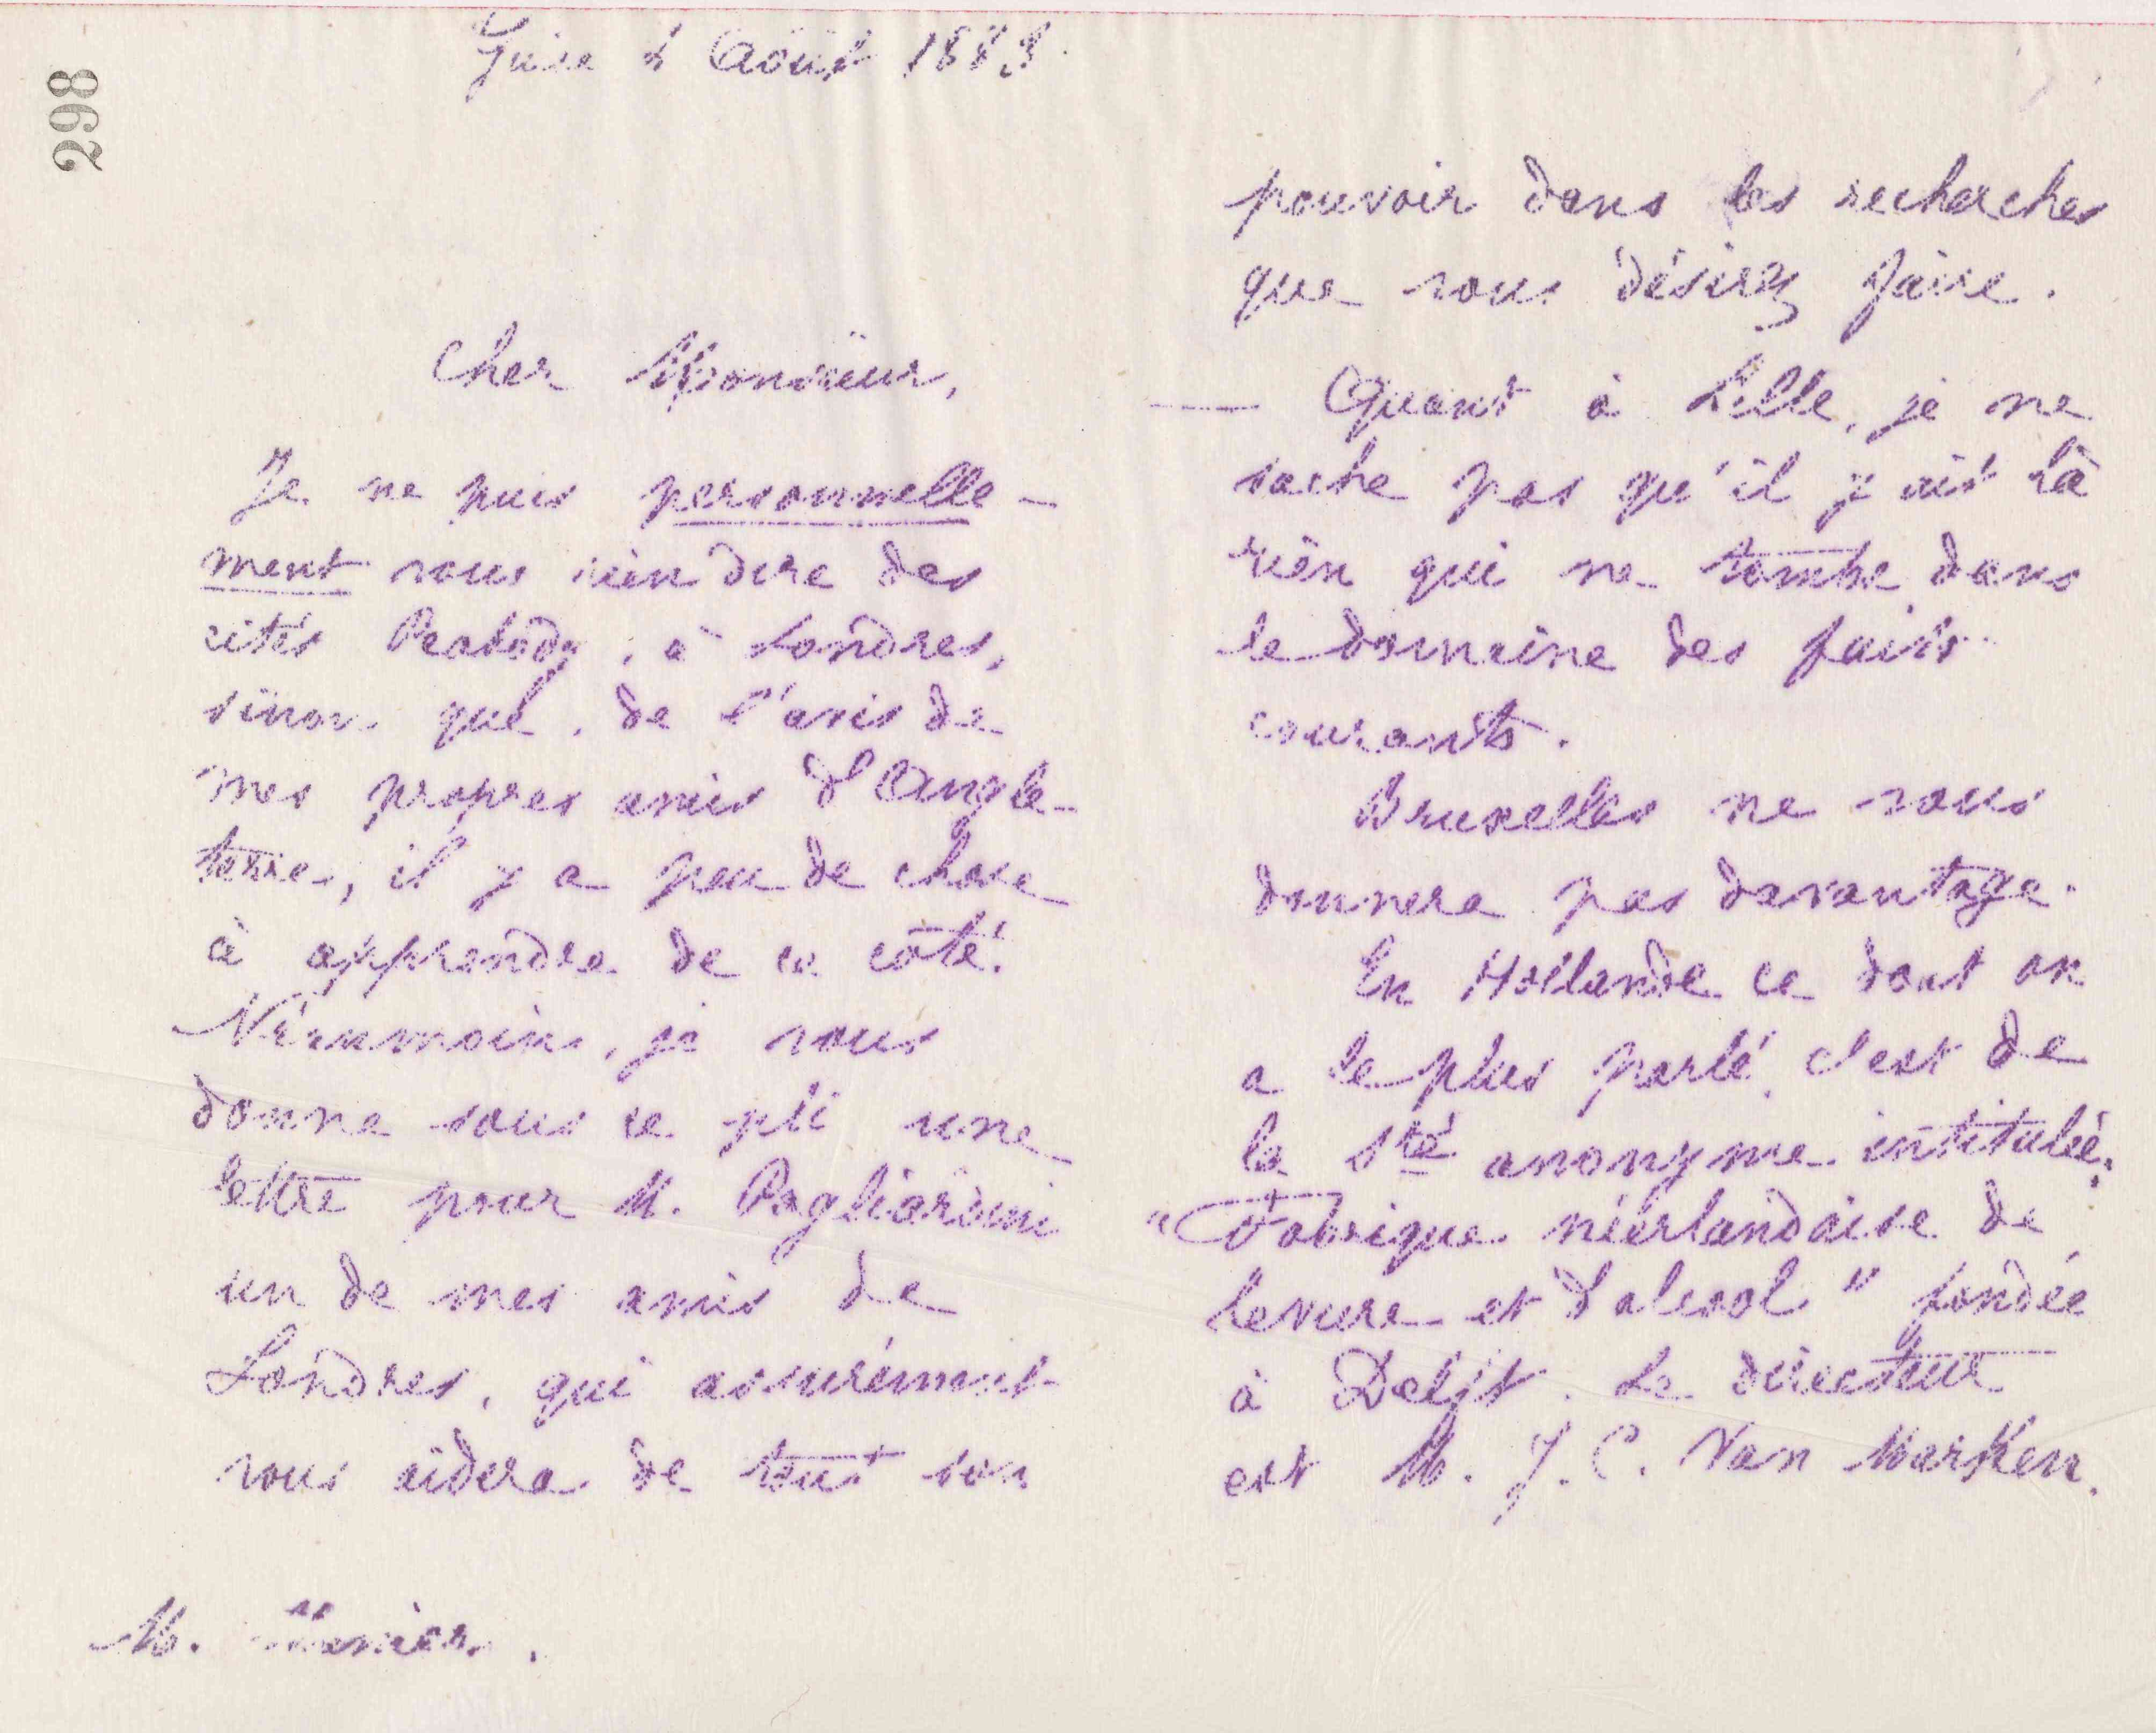 298
Guise 2 Août 1883
Cher Monsieur,
Je ne puis personnelle-
ment vous rien dire des
cités Peabody, à Londres,
sinon que, de l'avis de
mes propres amis d'Angle-
terre, il y a peu de chose
à apprendre de ce côté.
Néanmoins, je vous
donne sous ce pli une
lettre pour M. Pagliardini
un de mes amis de
Londres, qui assurément
vous aidera de tout son
M.
pouvoir dans les recherches
que vous désirez faire.
— Quant à Lille, je ne
sache pas qu'il y ait là
rien qui ne tombe dans
le domaine des faits
courants.
Bruxelles ne vous
donnera pas davantage.
En Hollande ce dont on
a le plus parlé, c'est de
la Sté anonyme intitulée,
"Fabrique néerlandaise de
levure et d'alcool" fondée
à Delft. Le directeur
est M. J. C. Van Marken.